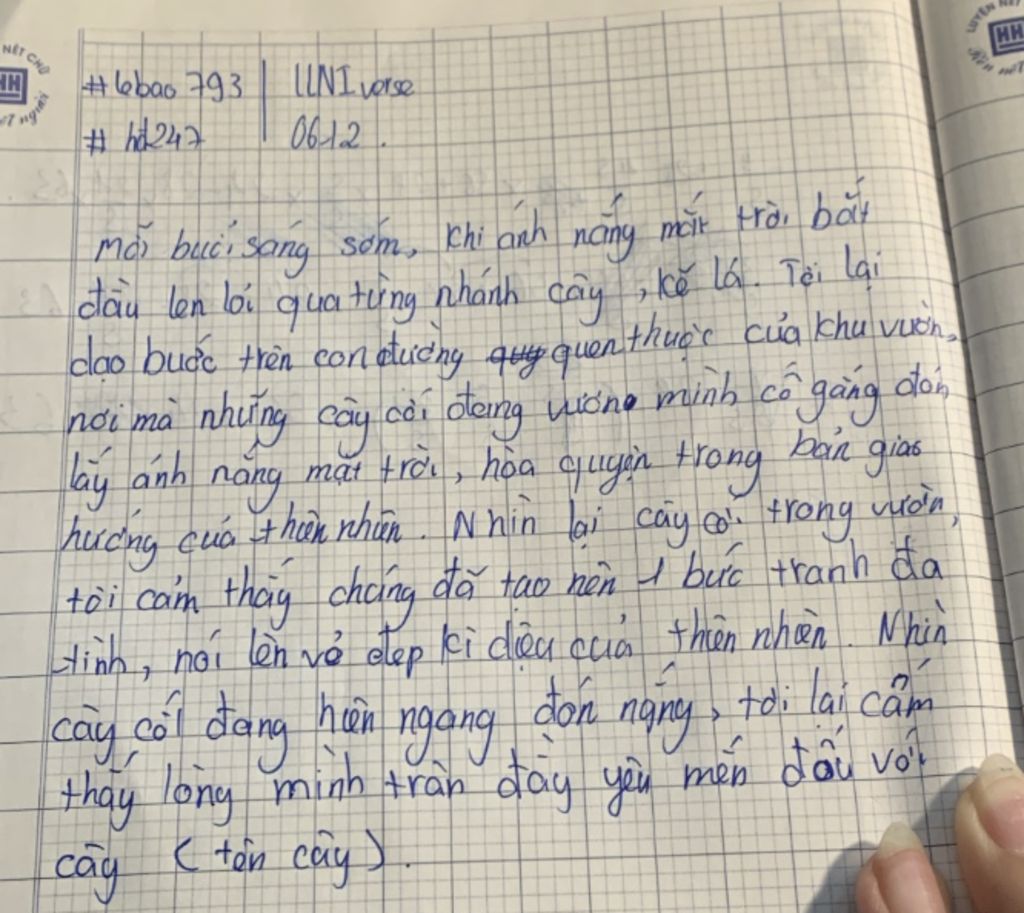 #lebao793 | UNIverse
# hd247 | 0612.
Mỗi buổi sáng sớm, khi ánh nắng mặt trời bắt
đầu len lỏi qua từng nhánh cây, kẽ lá. Tôi lại
dạo bước trên con đường quen thuộc của khu vườn,
nơi mà những cây cối đang vươn mình cố gắng đón
lấy ánh nắng mặt trời, hòa quyện trong bản giao
hưởng của thiên nhiên. Nhìn lại cây cối trong vườn,
tôi cảm thấy chúng đã tạo nên 1 bức tranh đa
tình, nói lên vẻ đẹp kì diệu của thiên nhiên. Nhìn
cây cối đang hiên ngang đón nắng, tôi lại cảm
thấy lòng mình tràn đầy yêu mến đối với
cây (tên cây).
NÉT CHỮ
HH
NẾT người
LUYỆN NÉT
HH